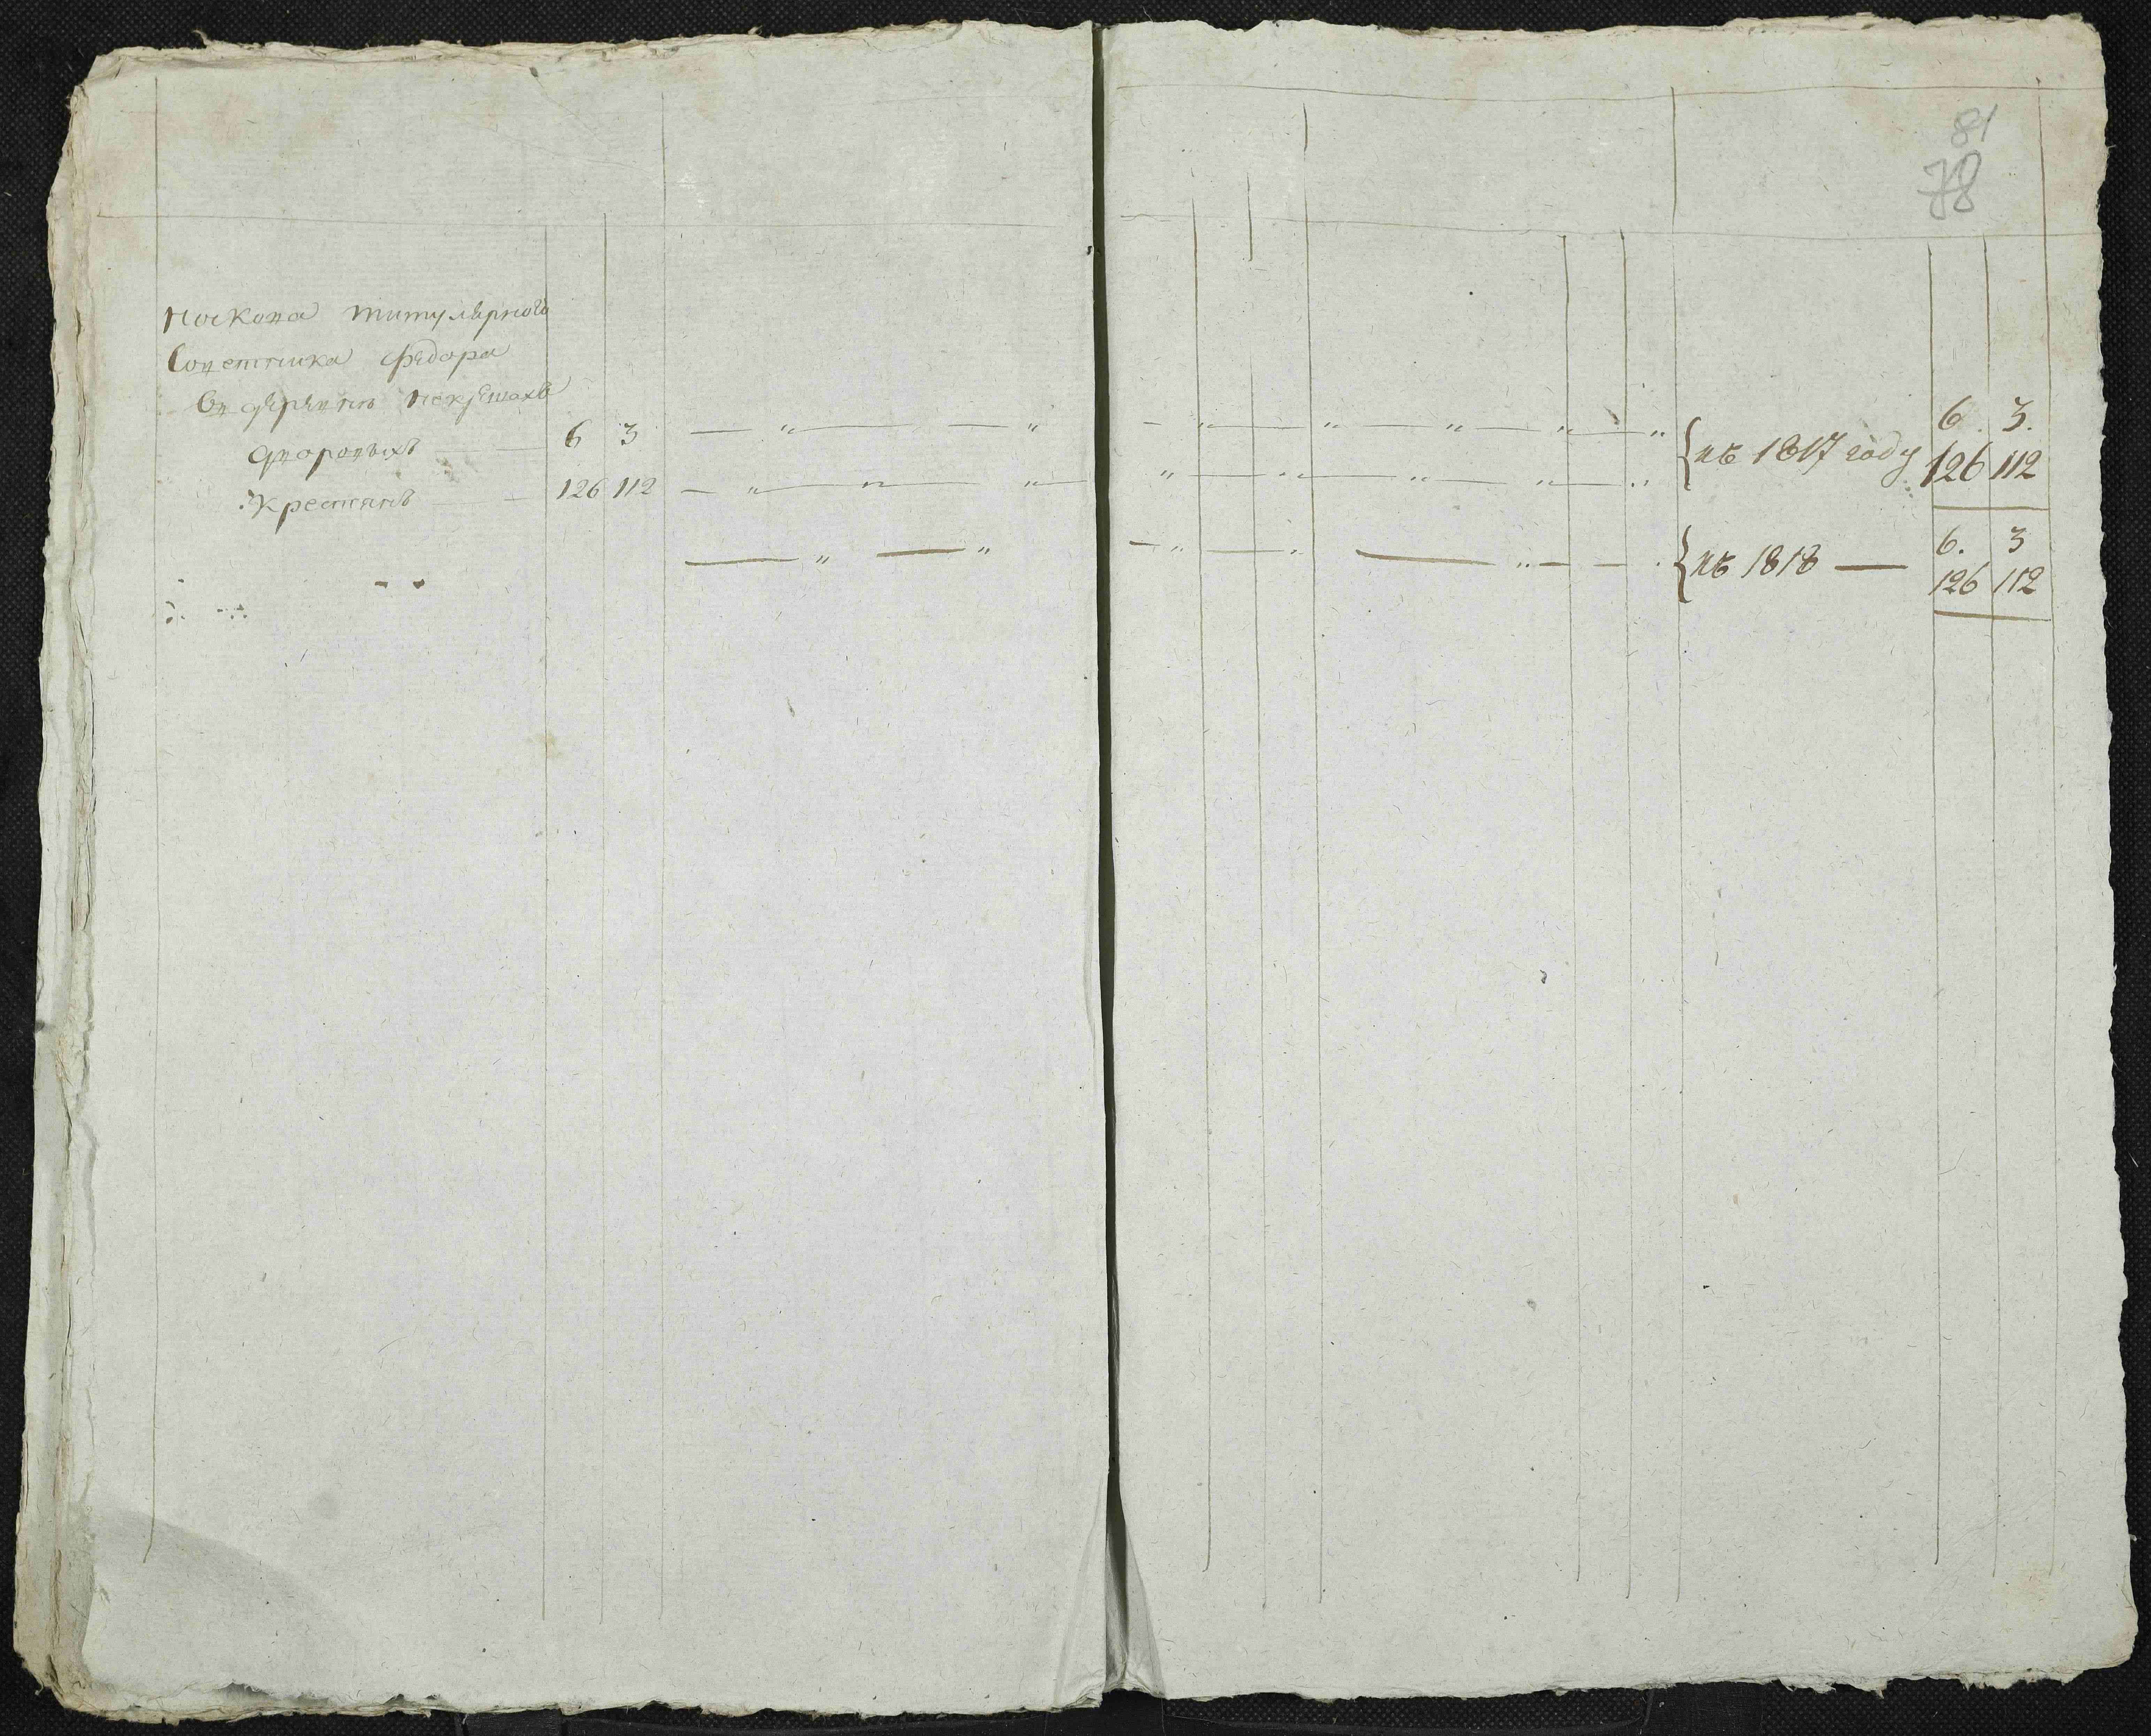 81
78
Носкова титулярного
Советника Федора
Въ деревне
дворовыхъ 6 3
Крестянъ 126 112
въ 1817 году 6. 3.
126 112
въ 1818 — 6. 3
126 112